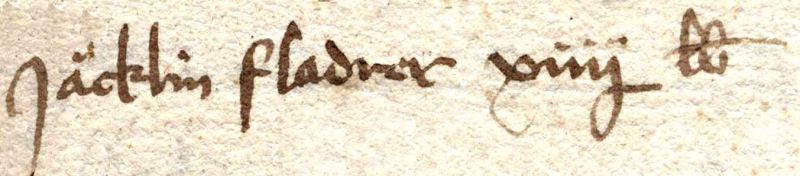 Jäcklin fladner xiiij lb